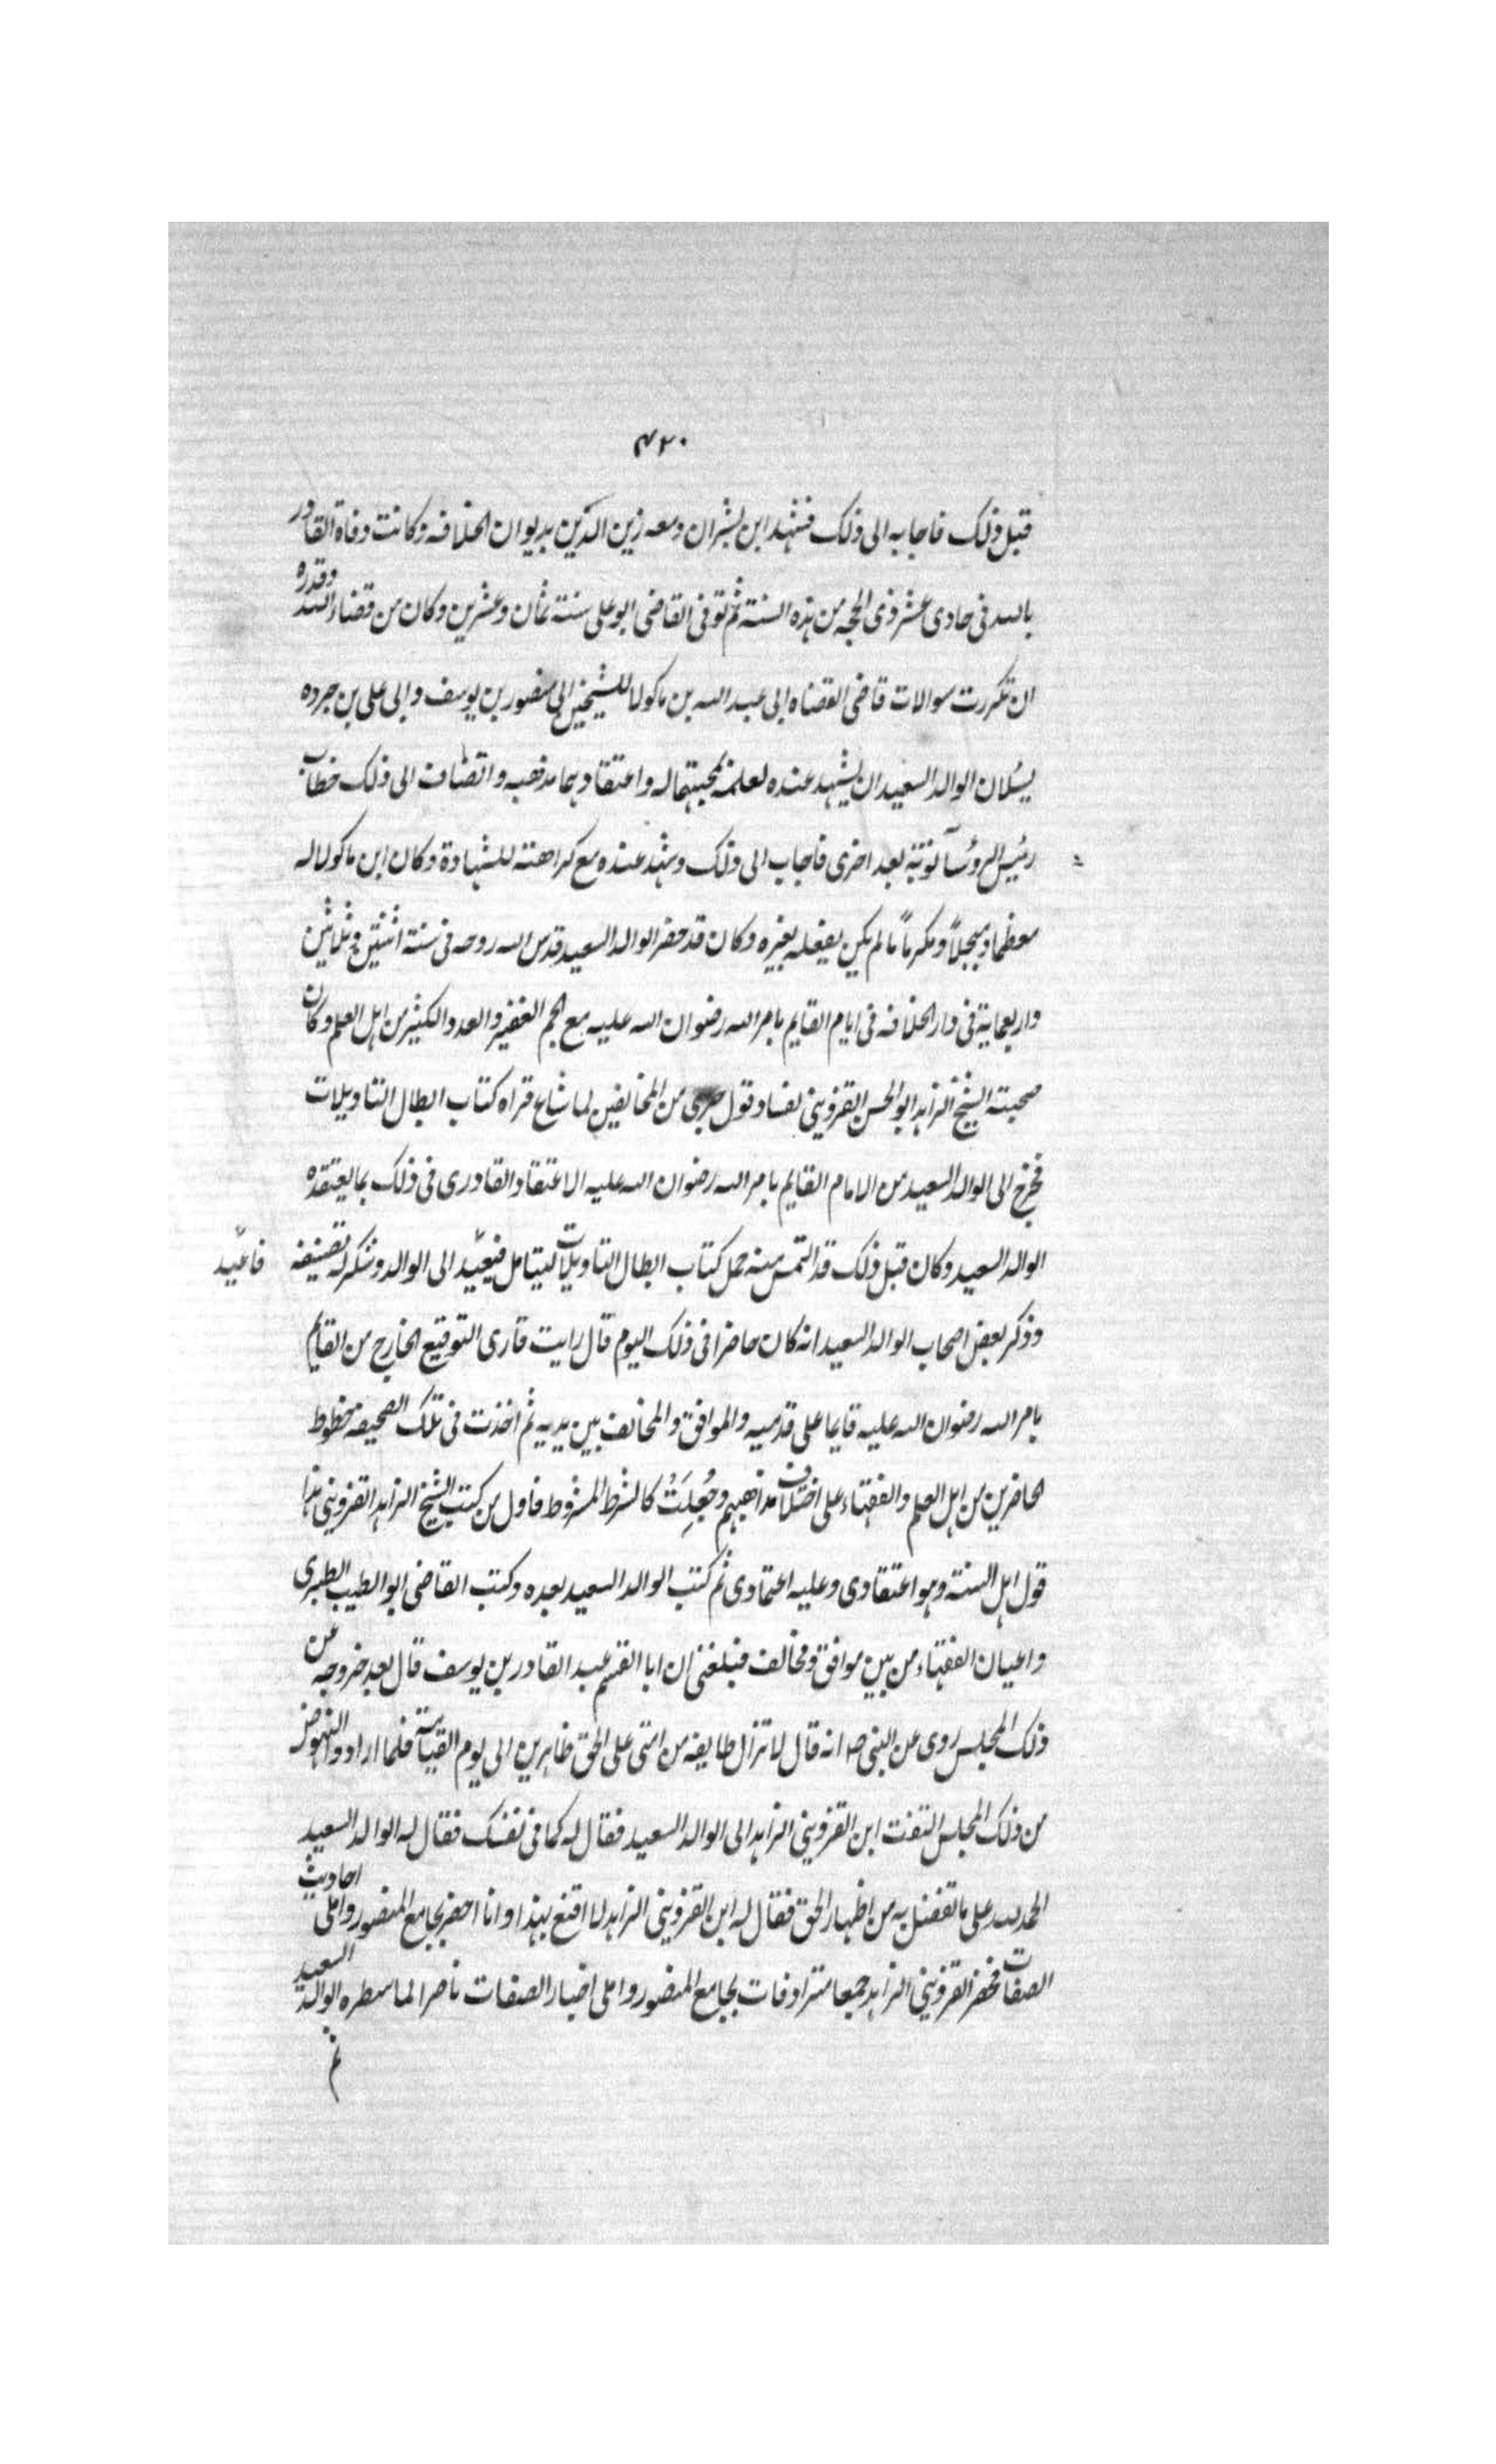 ۴۲۰
قبل ذلك فاجابه الى ذلك فشهد ابن بشران ومعه زين الدين بديوان الخلافه وكانت وفاة القادر
بالله فى حادى عشر ذى الحجه من هذه السنة ثم توفى القاضى ابو على سنة ثمان وعشرين وكان من قضاء الله وقدره
ان تكررت سوالات قاضى القضاه ابى عبد الله بن ماكولا للشيخين ابى منصور بن يوسف وابى على بن جرده
يسئلان الوالد السعيد ان يشهد عنده لعلمه بمحبتهما له واعتقادهما مذهبه وانضاف الى ذلك خطاب
رئيس الروسآ نوبة بعد اخرى فاجاب الى ذلك وشهد عنده مع كراهته للشهادة وكان ابن ماكولا له
معظما ومبجلاً ومكرماً ما لم يكن يفعله بغيره وكان قد حضر الوالد السعيد قدس الله روحه فى سنة اثنتين وثلاثين
واربعماية فى دار الخلافه فى ايام القايم بامر الله رضوان الله عليه مع الجم الغفير والعدد الكثير من اهل العلم وكان
صحبته الشيخ الزاهد ابو الحسن القزوينى لفساد قول جرى من المخالفين لما شاع قراه كتاب ابطال التاويلات
فخرج الى الوالد السعيد من الامام القايم بامر الله رضوان الله عليه الاعتقاد القادرى فى ذلك بما يعتقده
الوالد السعيد وكان قبل ذلك قد التمس منه حمل كتاب ابطال التاويلات ليتامل فيعيد الى الوالد وشكر له تصنيفه
فاعيد
وذكر بعض اصحاب الوالد السعيد انه كان حاضرا فى ذلك اليوم قال رايت قارى التوقيع الخارج من القايم
بامر الله رضوان الله عليه قايما على قدميه والموافق والمخالف بين يديه ثم اخذت فى تلك الصحيفه خطوط
الحاضرين من اهل العلم والفقهاء على اختلاف مذاهبهم وجُعِلَتْ كالشرط المشروط فاول من كتب الشيخ الزاهد القزوينى هذا
قول اهل السنة وهو اعتقادى وعليه اعتمادى ثم كتب الوالد السعيد بعده وكتب القاضى ابو الطيب الطبرى
واعيان الفقهاء من بين موافق ومخالف فبلغنى ان ابا القسم عبد القادر بن يوسف قال بعد خروجه من
ذلك المجلس روى عن النبى صه انه قال لا تزال طايفه من امتى على الحق ظاهرين الى يوم القيامة فلما ارادوا النهوض
من ذلك المجلس التفت ابن القزوينى الزاهد الى الوالد السعيد فقال له كما فى نفسك فقال له الوالد السعيد
الحمد لله على ما تفضل به من اظهار الحق فقال له ابن القزوينى الزاهد لا اقنع بهذا وانا احضر بجامع المنصور واملى احاديث
الصفات فحضر القزوينى الزاهد جمعا مترادفات بجامع المنصور واملى اخبار الصفات ناصرا لما سطره الوالد السعيد
ثم